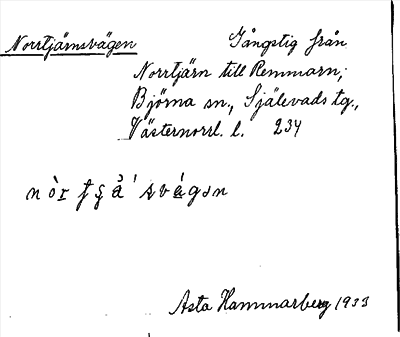 Norrtjärnsvägen Gångstig från
Norrtjärn till Remmarn,
Björna sn., Själevads tg.,
Västernorrl. l. 234
Asta Hammarberg 1933